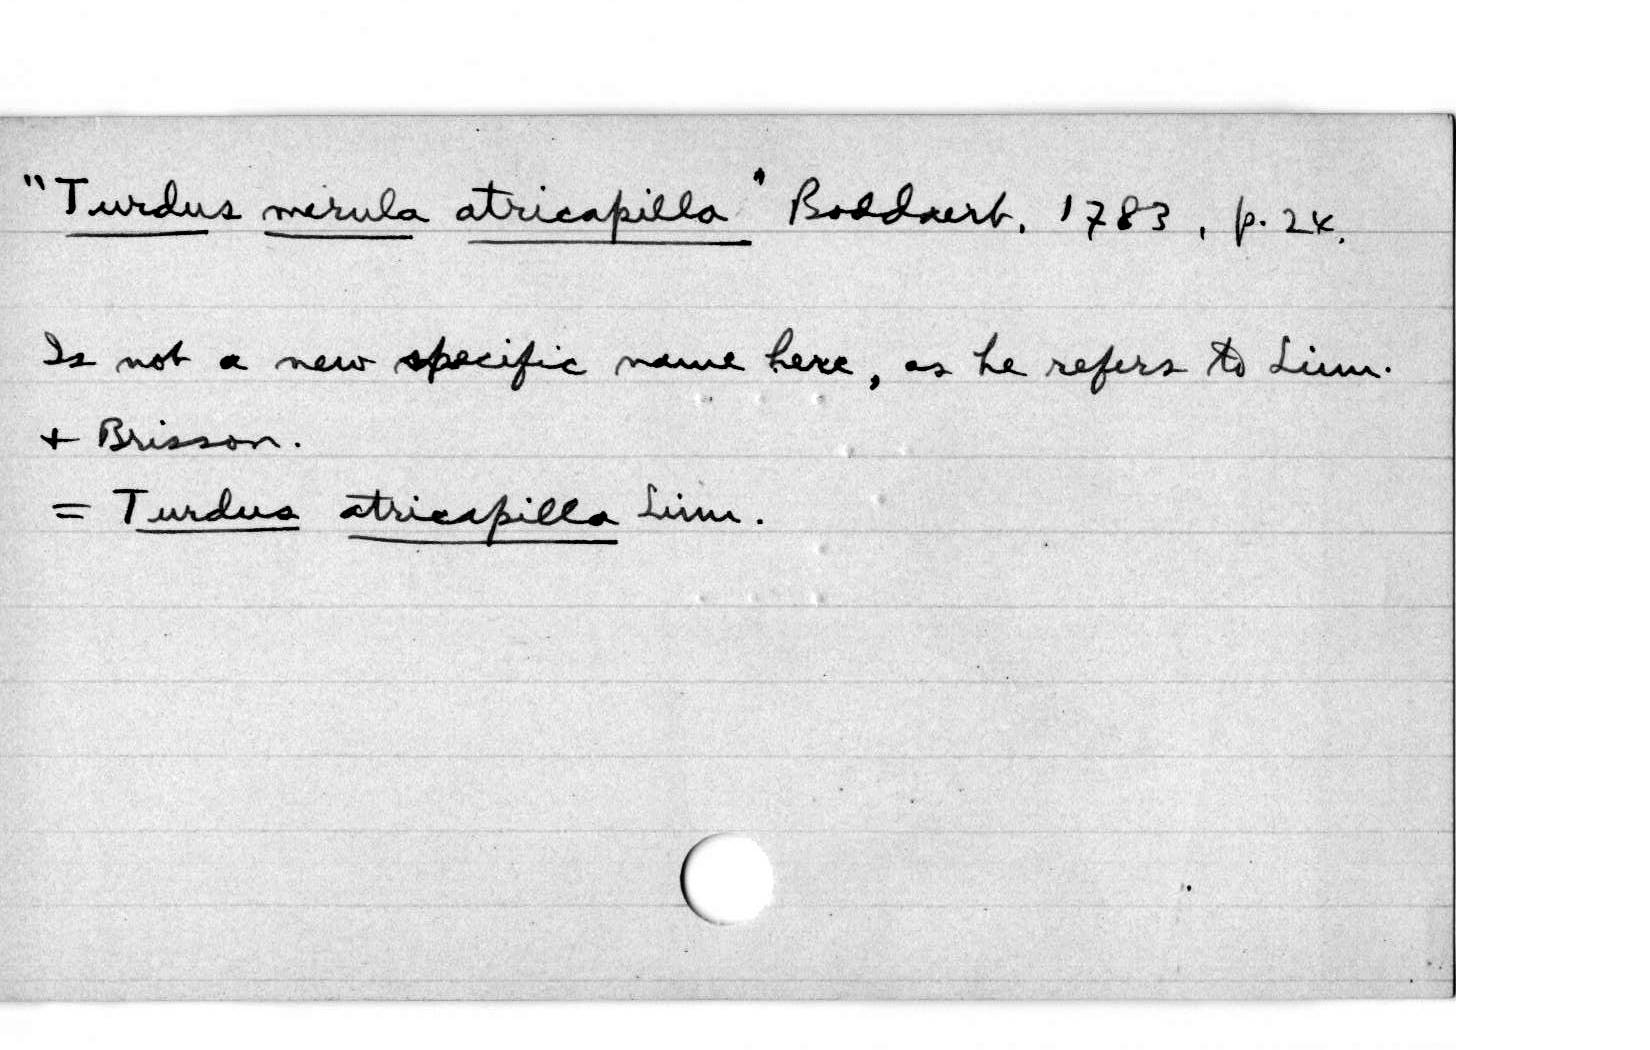 "Turdus merula atricapilla" Boddaert, 1783, p. 24.
Is not a new specific name here, as he refers to Linn.
+ Brisson.
= Turdus atricapilla Linn.